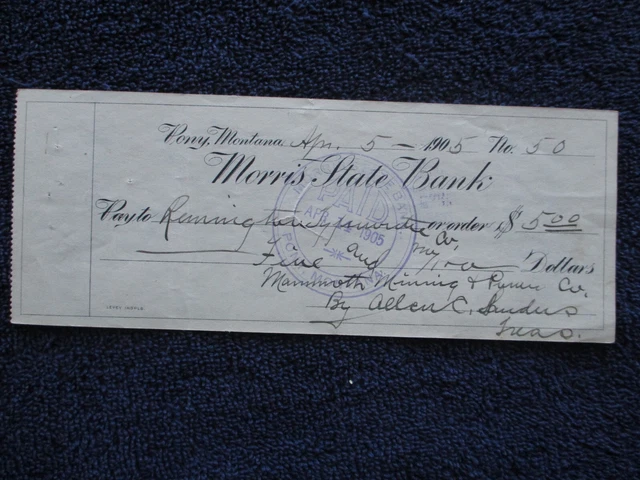 Pony, Montana, Apr. 5 – 1905 No. 50
Morris State Bank
Pay to Remington Typewriter Co. or order $ 5.00
Five and no/100 Dollars
Mammoth Mining & Power Co.
By Allen C. Sanders
Treas.
PAID
APR 24 1905
PONY, MONTANA